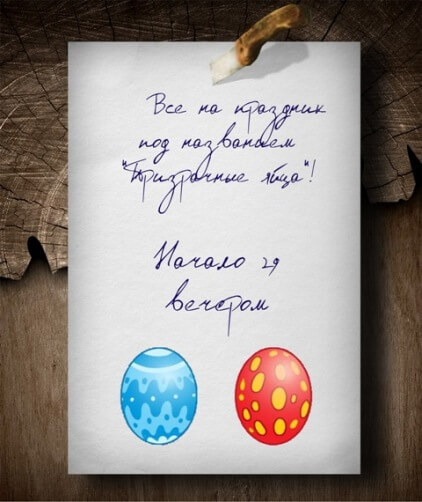 Все на праздник
под названием
"Призрачные яйца"!
Начало 29
вечером